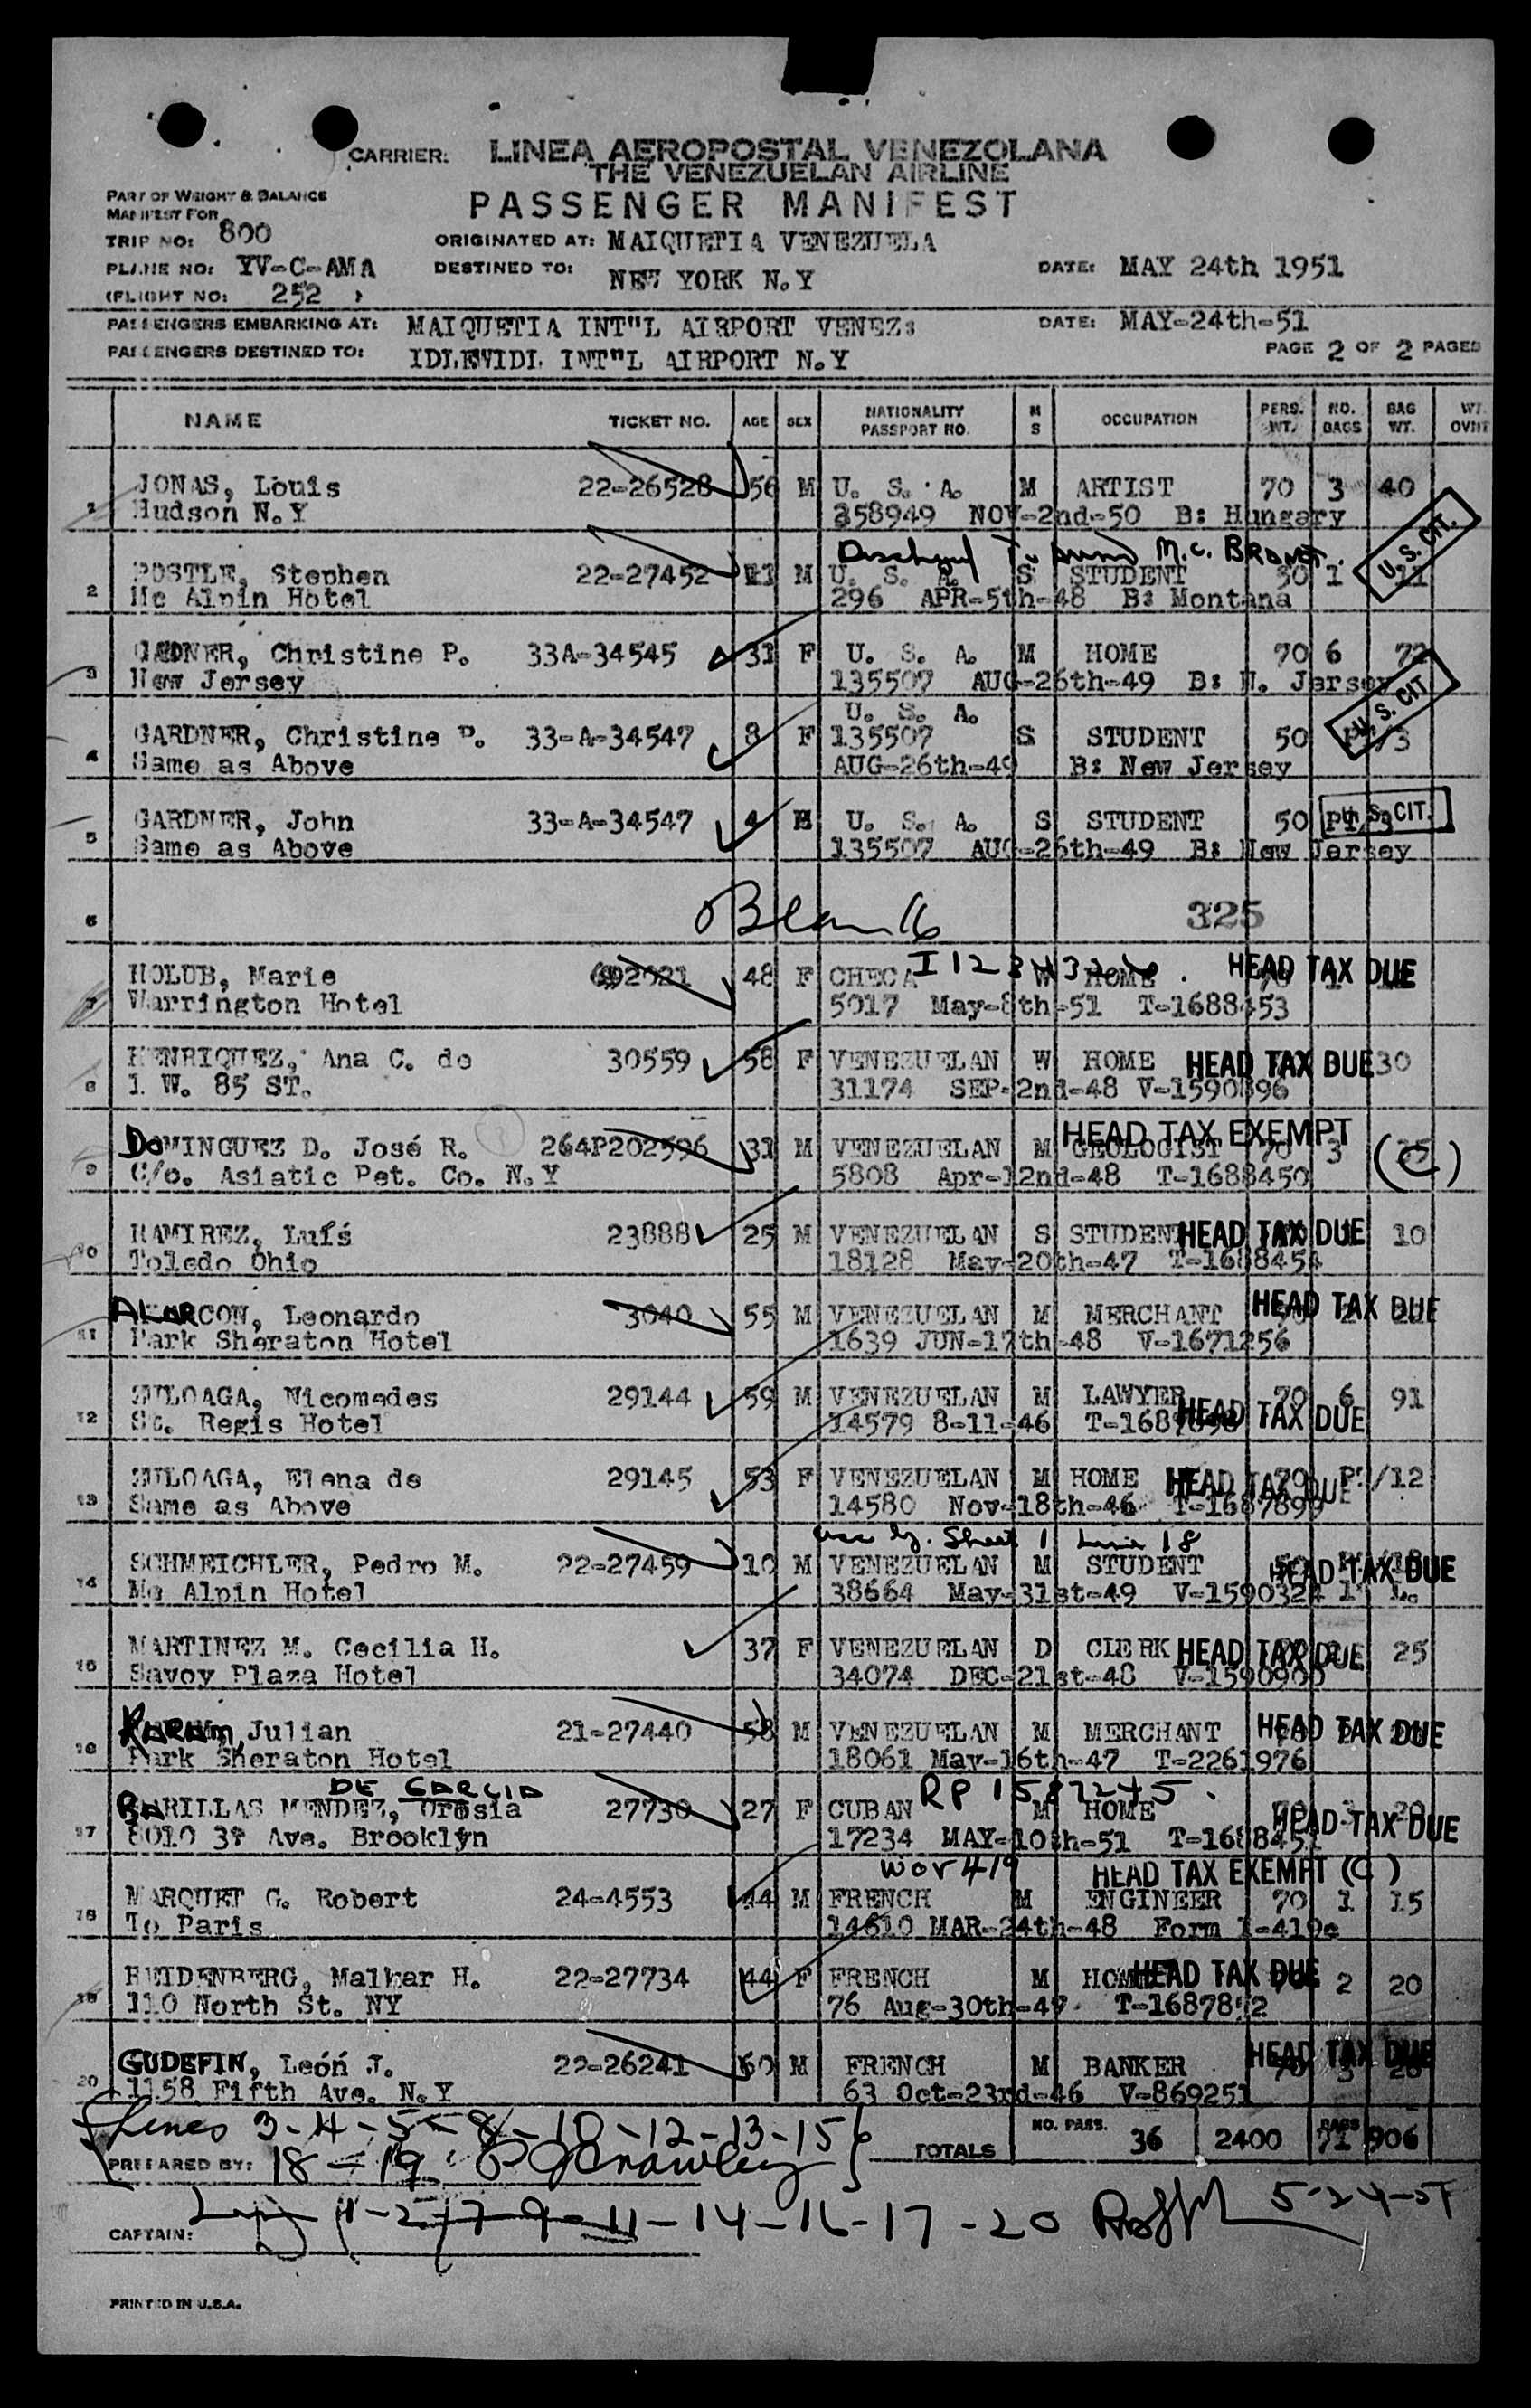 CARRIER: LINEA AEROPOSTAL VENEZOLANA
THE VENEZUELAN AIRLINE
PART OF WEIGHT & BALANCE
MANIFEST FOR
PASSENGER MANIFEST
TRIP NO: 800
ORIGINATED AT: MAIQUETIA VENEZUELA
PLANE NO: YV-C-AMA
DESTINED TO: NEW YORK N.Y
DATE: MAY 24th 1951
(FLIGHT NO: 252 )
PASSENGERS EMBARKING AT: MAIQUETIA INT"L AIRPORT VENEZ:
DATE: MAY-24th-51
PASSENGERS DESTINED TO: IDLEWIDL INT"L AIRPORT N.Y
PAGE 2 OF 2 PAGES
NAME TICKET NO. AGE SEX NATIONALITY PASSPORT NO. M S OCCUPATION PERS. WT. NO. BAGS BAG WT. WT. OVHT
JONAS, Louis 22-26528 56 M U. S. A. M ARTIST 70 3 40
1 Hudson N.Y 358949 NOV-2nd-50 B: Hungary
M.C. BRONET.
POSTLE, Stephen 22-27452 21 M U. S. A. S STUDENT 50 1 11 U.S. CIT.
2 Mc Alpin Hotel 296 APR-5th-48 B: Montana
GADNER, Christine P. 33A-34545 31 F U. S. A. M HOME 70 6 72
3 New Jersey 135507 AUG-26th-49 B: N. Jersey
U. S. A. U.S. CIT.
GARDNER, Christine P. 33-A-34547 8 F 135507 S STUDENT 50 /3
4 Same as Above AUG-26th-49 B: New Jersey
GARDNER, John 33-A-34547 4 M U. S. A. S STUDENT 50 PT/3 U.S. CIT.
5 Same as Above 135507 AUG-26th-49 B: New Jersey
6 Blank 325
HOLUB, Marie 692021 48 F CHECA W HOME 70 1 HEAD TAX DUE
7 Warrington Hotel 5017 May-8th-51 T-1688453
HENRIQUEZ, Ana C. de 30559 58 F VENEZUELAN W HOME HEAD TAX DUE 30
8 1 W. 85 ST. 31174 SEP-2nd-48 V-1590896
HEAD TAX EXEMPT
DOMINGUEZ D. José R. 264P202596 31 M VENEZUELAN M GEOLOGIST 70 3 (C)
9 C/o. Asiatic Pet. Co. N.Y 5808 Apr-12nd-48 T-1688450
RAMIREZ, Luís 23888 25 M VENEZUELAN S STUDENT HEAD TAX DUE 10
10 Toledo Ohio 18128 May-20th-47 T-1688454
ALARCON, Leonardo 3040 55 M VENEZUELAN M MERCHANT HEAD TAX DUE
11 Park Sheraton Hotel 1639 JUN-17th-48 V-1671256
ZULOAGA, Nicomedes 29144 59 M VENEZUELAN M LAWYER 70 6 91
12 St. Regis Hotel 14579 8-11-46 HEAD TAX DUE
ZULOAGA, Elena de 29145 53 F VENEZUELAN M HOME 70 PT/12 HEAD TAX DUE
13 Same as Above 14580 Nov-18th-46 T-1687899
acc by. Sheet 1 Line 18
SCHMEICHLER, Pedro M. 22-27459 10 M VENEZUELAN M STUDENT HEAD TAX DUE
14 Mc Alpin Hotel 38664 May-31st-49 V-1590324
MARTINEZ M. Cecilia H. 37 F VENEZUELAN D CLERK HEAD TAX DUE 25
15 Savoy Plaza Hotel 34074 DEC-21st-48 V-1590900
KARAM, Julian 21-27440 58 M VENEZUELAN M MERCHANT HEAD TAX DUE
16 Park Sheraton Hotel 18061 May-16th-47 T-2261976
DE GARCIA RP 1587245.
BARILLAS MENDEZ, Orosia 27730 27 F CUBAN M HOME HEAD TAX DUE
17 8010 3ª Ave. Brooklyn 17234 MAY-10th-51 T-1688451
WOV419 HEAD TAX EXEMPT (C)
MARQUET G. Robert 24-4553 44 M FRENCH M ENGINEER 70 1 15
18 To Paris 14610 MAR-24th-48 Form I-419c
HEIDENBERG, Malkar H. 22-27734 44 F FRENCH M HOME HEAD TAX DUE 2 20
19 110 North St. NY 76 Aug-30th-49 T-1687892
GUDEFIN, León J. 22-26241 60 M FRENCH M BANKER HEAD TAX DUE
20 1158 Fifth Ave. N.Y 63 Oct-23rd-46 V-869251
Lines 3-4-5-8-10-12-13-15
TOTALS NO. PASS. 36 2400 BAGS 71 906
PREPARED BY: 18-19
1-2-7-9-11-14-16-17-20 5-24-51
CAPTAIN:
PRINTED IN U.S.A.